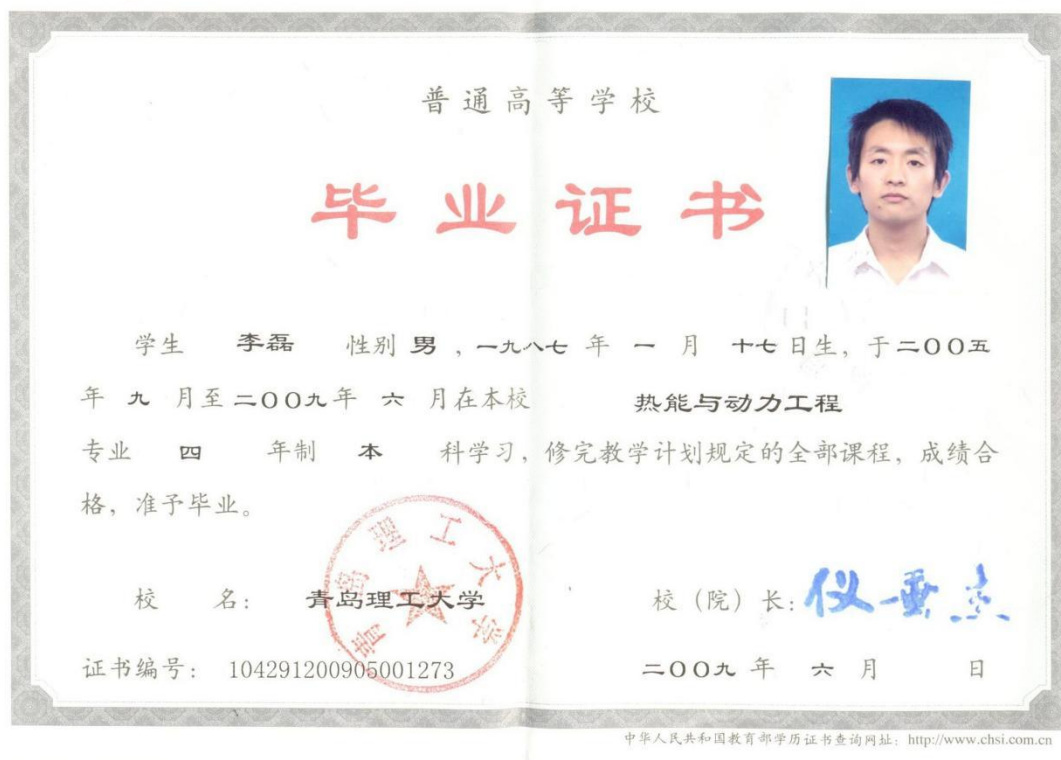 普通高等学校
毕业证书
学生 李磊 性别 男 ，一九八七 年 一 月 十七 日生，于二00五
年 九 月至 二00九年 六 月在本校 热能与动力工程
专业 四 年制 本 科学习，修完教学计划规定的全部课程，成绩合
格，准予毕业。
青岛理工大学
校 名： 青岛理工大学 校（院）长：仪垂杰
证书编号： 104291200905001273 二00九 年 六 月 日
中华人民共和国教育部学历证书查询网址：http://www.chsi.com.cn